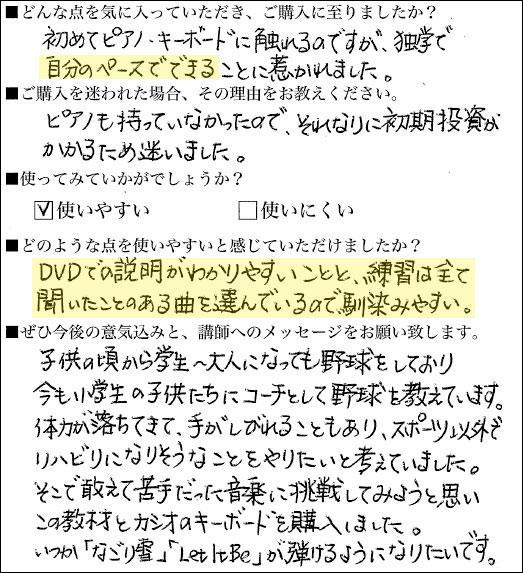 ■どんな点を気に入っていただき、ご購入に至りましたか？
初めてピアノ・キーボードに触れるのですが、独学で
自分のペースでできることに惹かれました。
■ご購入を迷われた場合、その理由をお教えください。
ピアノも持っていなかったので、それなりに初期投資が
かかるため迷いました。
■使ってみていかがでしょうか？
☑使いやすい　□使いにくい
■どのような点を使いやすいと感じていただけましたか？
DVDでの説明がわかりやすいことと、練習は全て
聞いたことのある曲を選んでいるので馴染みやすい。
■ぜひ今後の意気込みと、講師へのメッセージをお願い致します。
子供の頃から学生～大人になっても野球をしており
今も小学生の子供たちにコーチとして野球を教えています。
体力が落ちてきて、手がしびれることもあり、スポーツ以外で
リハビリになりそうなことをやりたいと考えていました。
そこで敢えて苦手だった音楽に挑戦してみようと思い
この教材とカシオのキーボードを購入しました。
いつか「なごり雪」「Let It Be」が弾けるようになりたいです。